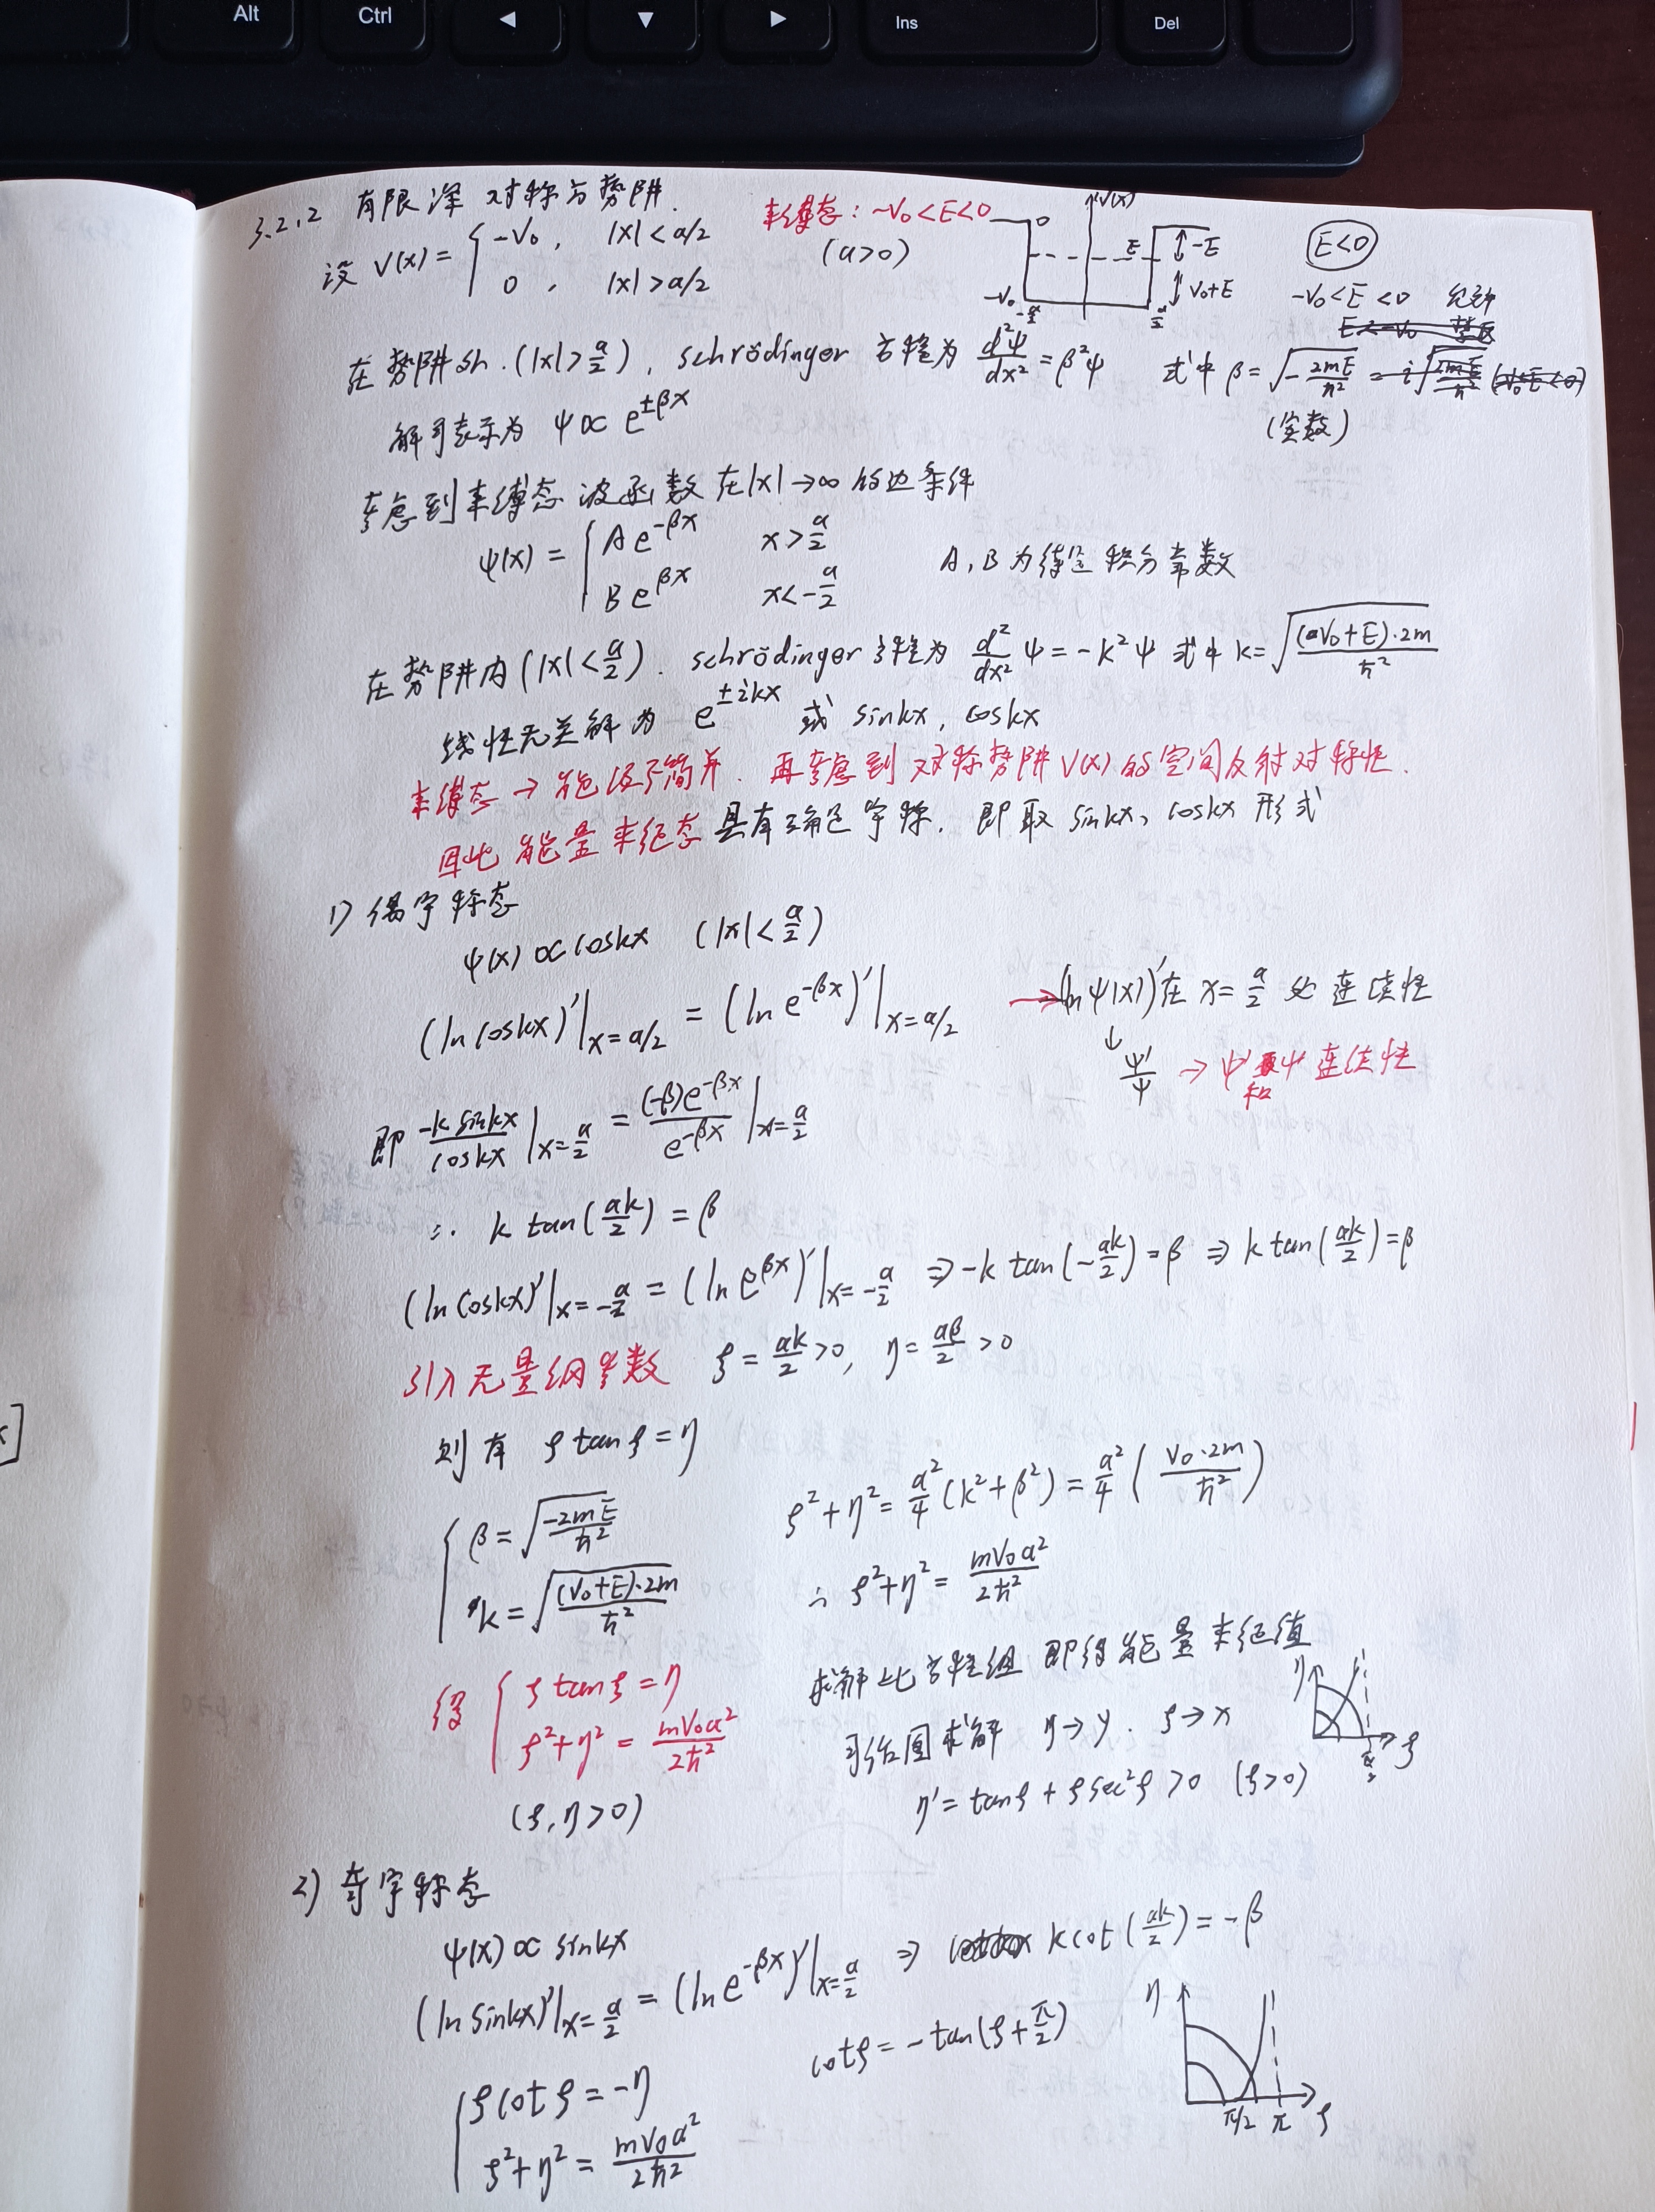 Alt Ctrl ◀ ▼ ▶ Ins Del
3.2.2 有限深对称方势阱.
设 V(x) = { -V₀, |x| < a/2
0, |x| > a/2
束缚态: -V₀ < E < 0
(a>0)
V(x)
0
E
-E
V₀+E
-V₀
-a/2
a/2
E<0
-V₀ < E < 0 允许
在势阱外.(|x|>a/2), schrödinger 方程为 d²ψ/dx² = β²ψ 式中 β = √(-2mE/ħ²)
(实数)
解可表示为 ψ ∝ e^{±βx}
考虑到束缚态波函数在|x|→∞的边条件
ψ(x) = { Ae^{-βx} x > a/2
Be^{βx} x < -a/2
A, B 为待定积分常数
在势阱内(|x|<a/2). schrödinger 方程为 d²/dx² ψ = -k²ψ 式中 k = √((V₀+E)·2m/ħ²)
线性无关解为 e^{±ikx} 或 sinkx, coskx
束缚态→能级不简并. 再考虑到对称势阱V(x)的空间反射对称性.
因此能量本征态具有确定宇称. 即取 sinkx、coskx 形式
1) 偶宇称态
ψ(x) ∝ coskx (|x|<a/2)
(ln coskx)'|_{x=a/2} = (ln e^{-βx})'|_{x=a/2} → (lnψ(x))'在 x=a/2 处连续性
↓
ψ'/ψ → ψ'和ψ连续性
即 -k sinkx/coskx |_{x=a/2} = (-β)e^{-βx}/e^{-βx} |_{x=a/2}
∴ k tan(ak/2) = β
(ln coskx)'|_{x=-a/2} = (ln e^{βx})'|_{x=-a/2} ⇒ -k tan(-ak/2) = β ⇒ k tan(ak/2) = β
引入无量纲参数 ξ = ak/2 > 0, η = aβ/2 > 0
则有 ξ tanξ = η
{ β = √(-2mE/ħ²)
k = √((V₀+E)·2m/ħ²)
ξ²+η² = a²/4 (k²+β²) = a²/4 (V₀·2m/ħ²)
∴ ξ²+η² = mV₀a²/2ħ²
得 { ξ tanξ = η
ξ²+η² = mV₀a²/2ħ²
(ξ, η > 0)
求解此方程组即得能量本征值
可作图求解 η→y. ξ→x
η' = tanξ + ξ sec²ξ > 0 (ξ>0)
η
π/2
ξ
2) 奇宇称态
ψ(x) ∝ sinkx
(ln sinkx)'|_{x=a/2} = (ln e^{-βx})'|_{x=a/2} ⇒ k cot(ak/2) = -β
cotξ = -tan(ξ+π/2)
{ ξ cotξ = -η
ξ²+η² = mV₀a²/2ħ²
η
π/2 π ξ